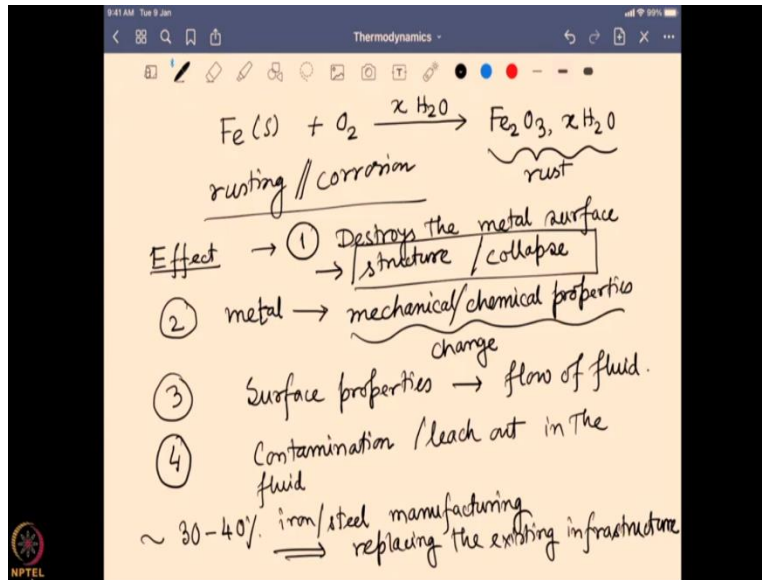 9:41 AM Tue 9 Jan 99%
Thermodynamics
Fe(s) + O₂ x H₂O → Fe₂O₃, x H₂O
rust
rusting // corrosion
Effect → ① Destroys the metal surface
→ structure / collapse
② metal → mechanical/chemical properties
change
③ Surface properties → flow of fluid.
④ Contamination / leach out in the
fluid
~ 30-40% iron/steel manufacturing
⇒ replacing the existing infrastructure
NPTEL